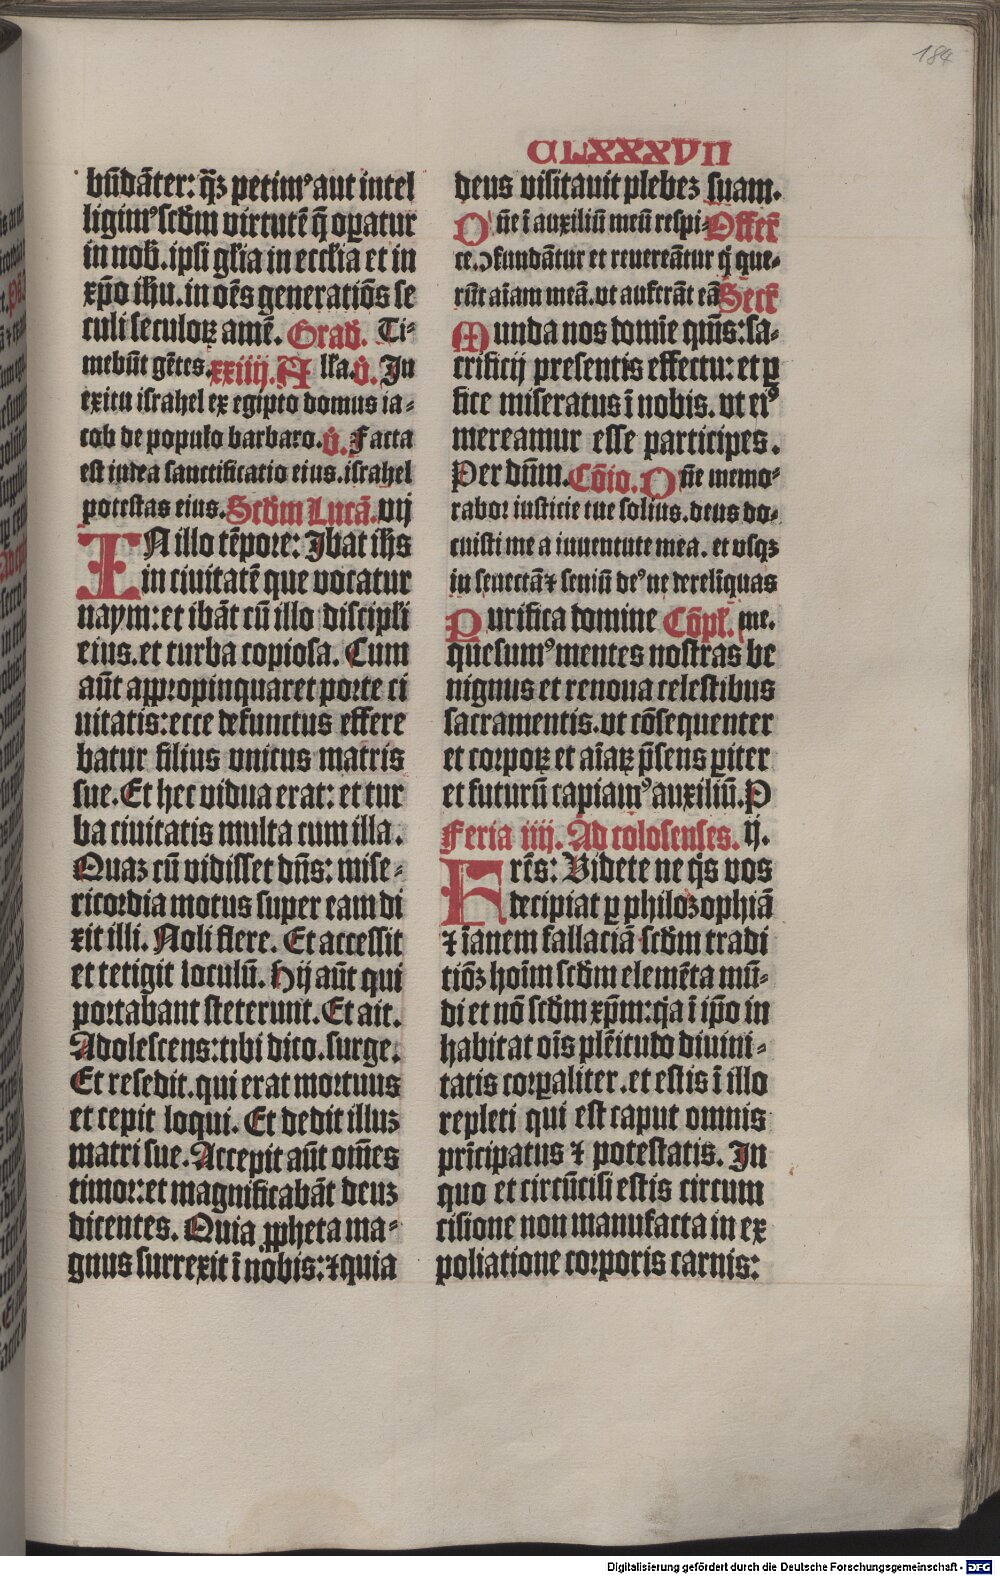 184
CLXXXVII
būdāter: q̄ꝫ petimꝰ aut intel
ligimꝰ scd̄m virtutē q̄ oꝑatur
in nob̄. ipsi gl̄ia in eccl̄ia et in
xp̄o ih̄u. in oēs generatiōs se
culi seculoꝝ amē. Grad̄. Ti-
mebūt gētes. xxiiij. A ll̄a. v̄. In
exitu israhel ex egipto domus ia-
cob de populo barbaro. v̄. Facta
est iudea sanctificatio eius. israhel
potestas eius. Scd̄m Lucā. vij
IN illo tēpore: Ibat ih̄s
in ciuitatē que vocatur
naym: et ibāt cū illo discipli
eius. et turba copiosa. Cum
aūt appropinquaret porte ci
uitatis: ecce defunctus effere
batur filius vnicus matris
sue. Et hec vidua erat: et tur
ba ciuitatis multa cum illa.
Quaꝫ cū vidisset dn̄s: mise-
ricordia motus super eam di
xit illi. Noli flere. Et accessit
et tetigit loculū. Hij aūt qui
portabant steterunt. Et ait.
Adolescens: tibi dico. surge.
Et resedit. qui erat mortuus
et cepit loqui. Et dedit illuꝫ
matri sue. Accepit aūt om̄es
timor: et magnificabāt deuꝫ
dicentes. Quia ꝓpheta ma-
gnus surrexit ī nobis: ⁊ quia
deus visitauit plebeꝫ suam.
Dn̄e ī auxiliū meū respi- Offer̄
ce. ↄfundātur et reuereātur q̄ que-
rūt aīam meā. vt auferāt eā Secr̄
Munda nos domīe qm̄s: sa-
crificij presentis effectu: et ꝑ
fice miseratus ī nobis. vt eiꝰ
mereamur esse participes.
Per dn̄m. Cōio. Dn̄e memo-
rabor iusticie tue solius. deus do-
cuisti me a iuuentute mea. et vsqꝫ
in senectā ⁊ seniū deꝰ ne derelīquas
Purifica domine Cōpl̄. me.
quesumꝰ mentes nostras be
nignus et renoua celestibus
sacramentis. vt cōsequenter
et corpoꝝ et aīaꝝ p̄sens ꝑiter
et futurū capiamꝰ auxiliū. P
Feria iiij. Ad colosenses. ij.
Frēs: Videte ne q̄s vos
decipiat ꝑ philozophiā
⁊ īanem fallaciā scd̄m tradi
tiōꝫ hoīm scd̄m elemēta mū-
di et nō scd̄m xp̄m: q̄a ī ip̄o in
habitat oīs plēitudo diuini-
tatis corꝑaliter. et estis ī illo
repleti qui est caput omnis
prīcipatus ⁊ potestatis. In
quo et circūcisi estis circum
cisione non manufacta in ex
poliatione corporis carnis:
Digitalisierung gefördert durch die Deutsche Forschungsgemeinschaft - DFG